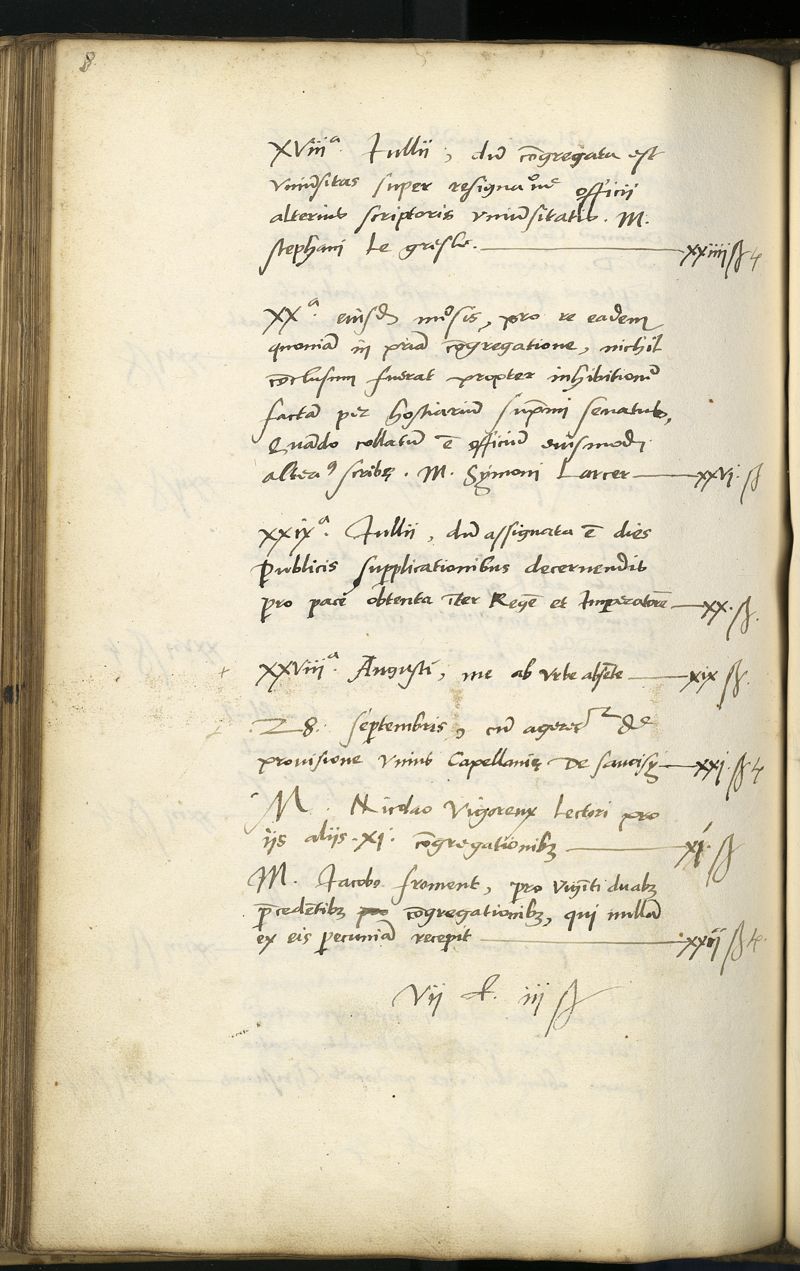 8
XViiiᵃ. Jullii, dū cōngregata est
Vniūsitas super resignaᵒnē officii
alterius scriptoris vniūsitatis. M.
stephani Le gresle. — xxiiii ß
XXᵃ. eiusdē mēsis, pro re eadem
quoniā in priā cōgregatione, nichil
conclusum fuerat propter inhibitionē
factā per hostiariū supmi senatus,
Quādo collatū ē officiū eiusmodi
alteriꝰ scribę. M. Symoni Larcer — xxVi. ß
xxixᵃ. Jullii, dū assignata ē dies
Publicis supplicationibus decernendis
pro pacē obtenta īter Regē et Imperatorē — xx. ß.
xxViiiᵃ. Augusti, me ab vrbe absēte — xix ß.
28. septembris, cū ageret̄ de
prouisione vnius Capellanię De saucisy — xxi. ß
M. Nicolao Vigoreux Lectori pro
iis aliis .xi. cōngregationibꝫ — xi. ß
M. Jacobo froment, pro vigīti duabꝫ
p̄cedētibꝫ cōngregationibꝫ, qui nullā
ex eis pecuniā recepit — xxii ß
Vii ℓ. iii ß